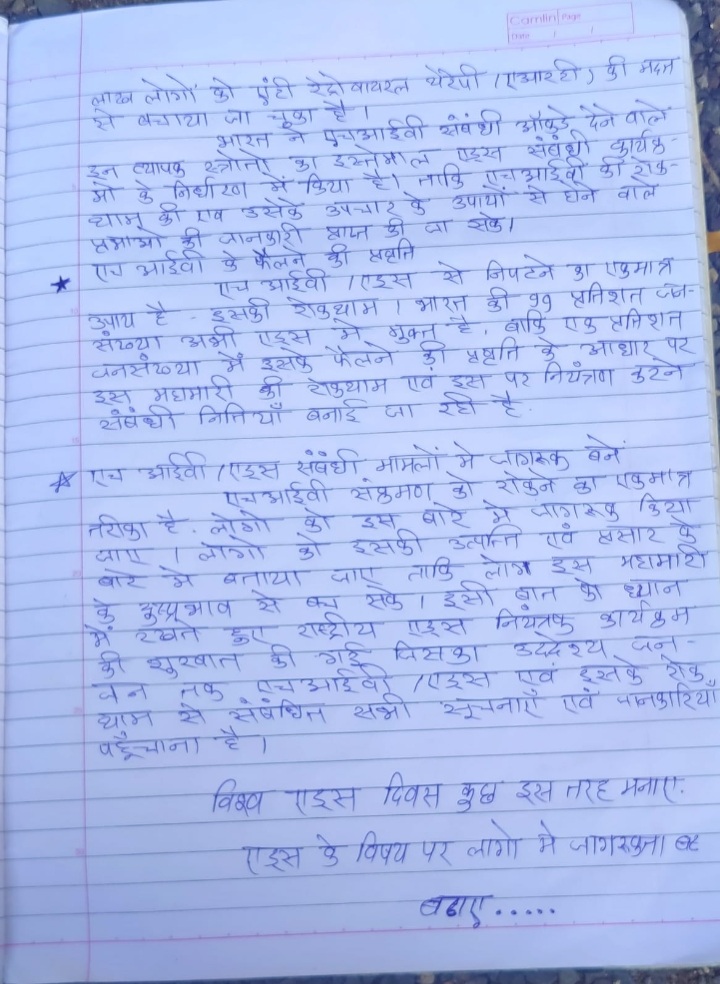 Camlin Page
Date / /
लाख लोगों को एंटी रेट्रोवायरल थेरेपी (एआरटी) की मदत
से बचाया जा चूका है।
भारत ने एचआईवी संबंधी आँकडे देने वाले
इन व्यापक स्त्रोतो का इस्तेमाल एड्स संबंधी कार्यक्र-
मो के निर्धारण में किया है। ताकि एचआईवी की रोक-
थाम की एवं उसके उपचार के उपायों से होने वाले
प्रभाओ की जानकारी प्राप्त की जा सके।
एच आईवी के फैलने की प्रवृत्ति
एच आईवी /एड्स से निपटने का एकमात्र
उपाय है - इसकी रोकथाम। भारत की 99 प्रतिशत जन-
संख्या अभी एड्स मे मुक्त है, बाकि एक प्रतिशत
जनसंख्या में इसके फैलने की प्रवृति के आधार पर
इस महामारी की रोकथाम एवं इस पर नियंत्रण करने
संबंधी नितियाँ बनाई जा रही है.
एच आईवी /एड्स संबंधी मामलों मे जागरूक बने
एचआईवी संक्रमण को रोकने का एकमात्र
तरीका है. लोगो को इस बारे मे जागरूक किया
जाए। लोगो को इसकी उत्पत्ति एवं प्रसार के
बारे मे बताया जाए ताकि लोग इस महामारी
के दुष्प्रभाव से बच सके। इसी बात को ध्यान
में रखते हुए राष्ट्रीय एड्स नियंत्रक कार्यक्रम
की शुरुवात की गई जिसका उददेश्य जन-
जन तक एचआईवी /एड्स एवं इसके रोक
थाम से संबंधित सभी सूचनाएँ एवं जानकारियाँ
पहूँचाना है।
विश्व एड्स दिवस कुछ इस तरह मनाए.
एड्स के विषय पर लोगो मे जागरूकता
बढाए.....